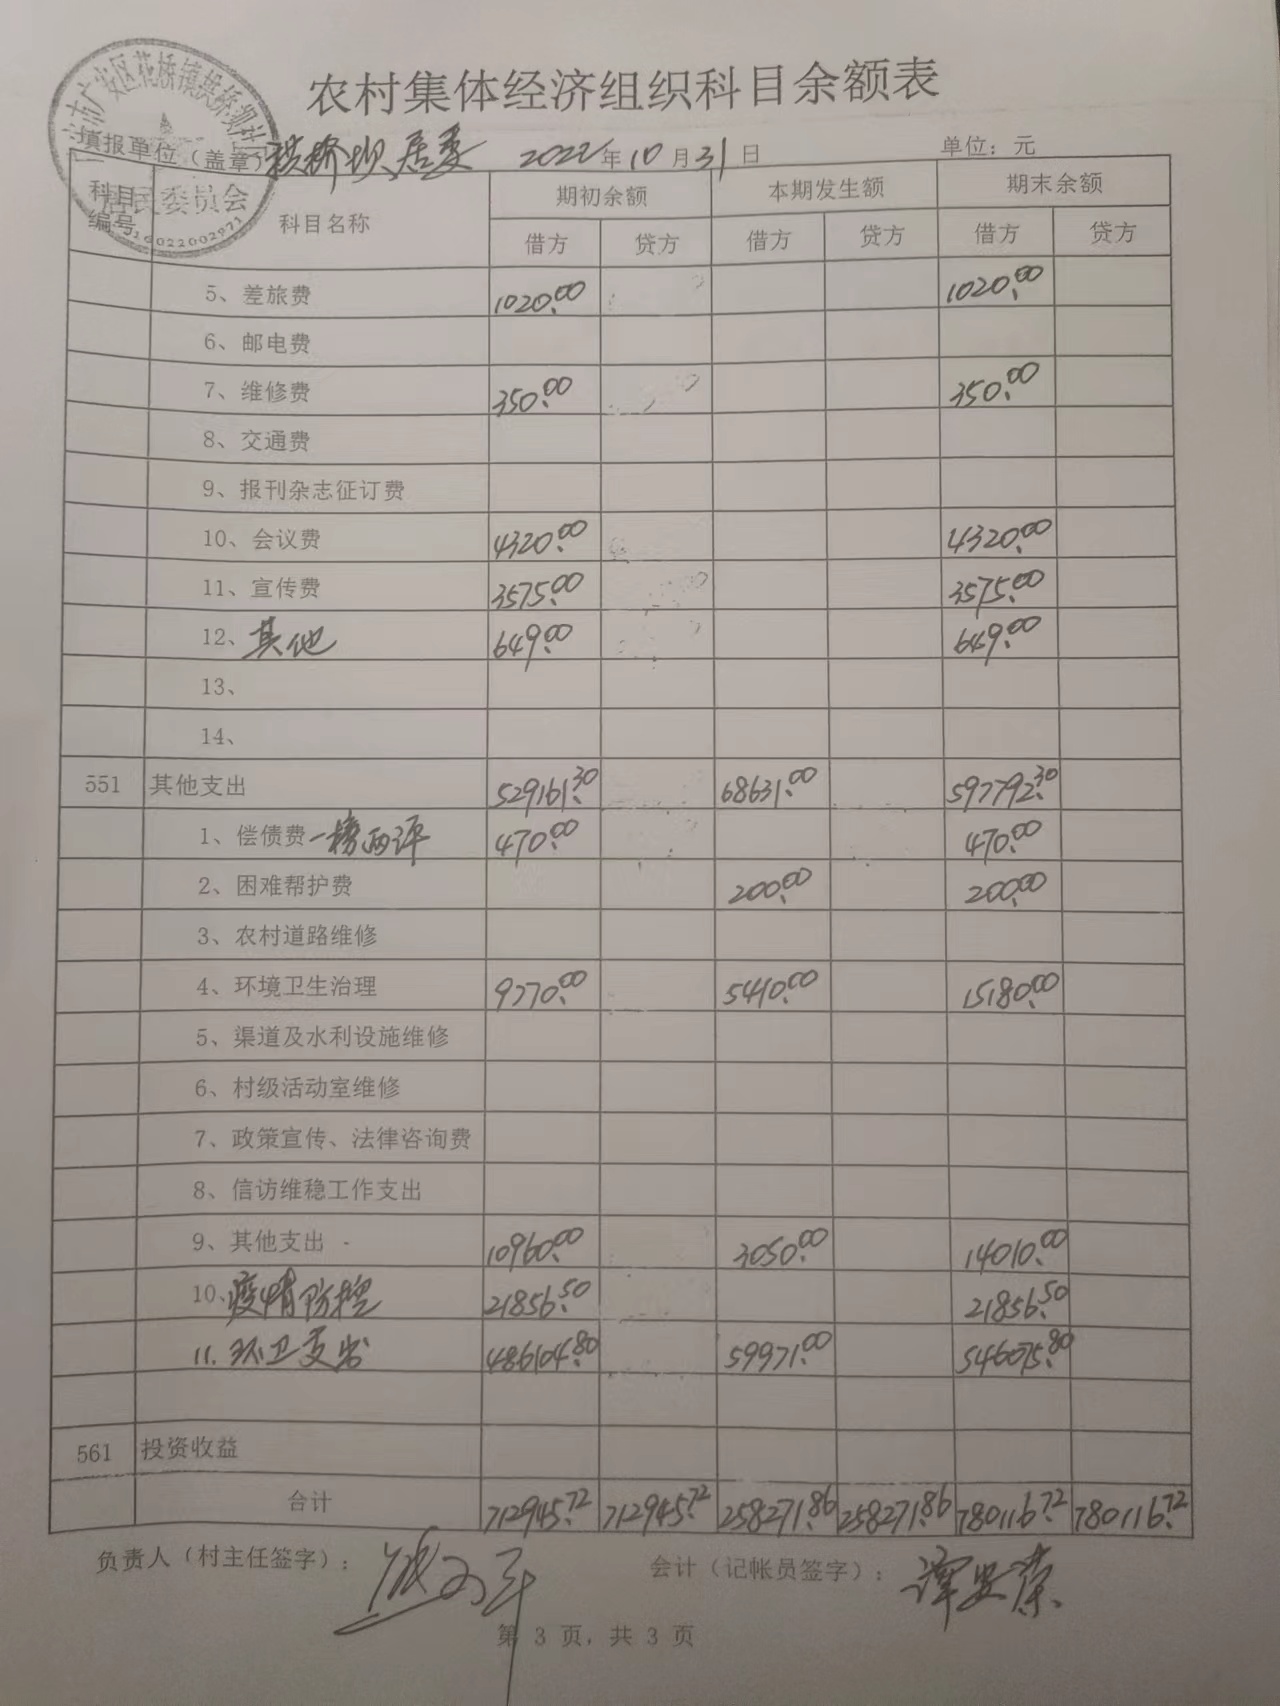 农村集体经济组织科目余额表
填报单位（盖章） 拱桥坝居委 2022年10月31日 单位：元
居民委员会
科目编号 科目名称 期初余额 本期发生额 期末余额
借方 贷方 借方 贷方 借方 贷方
5、差旅费 1020.00 1020.00
6、邮电费
7、维修费 350.00 350.00
8、交通费
9、报刊杂志征订费
10、会议费 4320.00 4320.00
11、宣传费 3575.00 3575.00
12、其他 649.00 649.00
13、
14、
551 其他支出 529161.30 68631.00 597792.30
1、偿债费 一榜两评 470.00 470.00
2、困难帮护费 200.00 200.00
3、农村道路维修
4、环境卫生治理 9770.00 5410.00 15180.00
5、渠道及水利设施维修
6、村级活动室维修
7、政策宣传、法律咨询费
8、信访维稳工作支出
9、其他支出 10960.00 3050.00 14010.00
10、疫情防控 21856.50 21856.50
11.环卫支出 486104.80 59971.00 546075.80
561 投资收益
合计 712945.72 712945.72 258271.86 258271.86 780116.72 780116.72
负责人（村主任签字）： 会计（记帐员签字）：
第 3 页，共 3 页